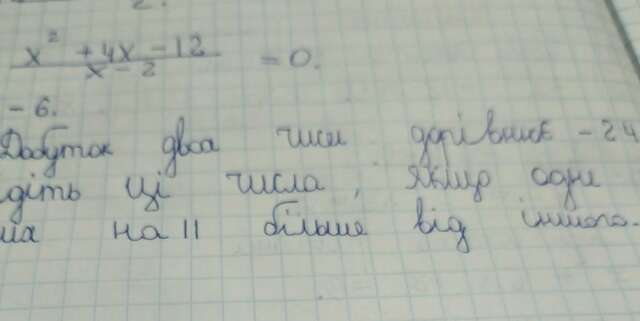 x² + 4x - 12
x - 2 = 0.
- 6.
Добуток двох чисел дорівнює - 24
діть ці числа, якщо одне
на 11 більше від іншого.